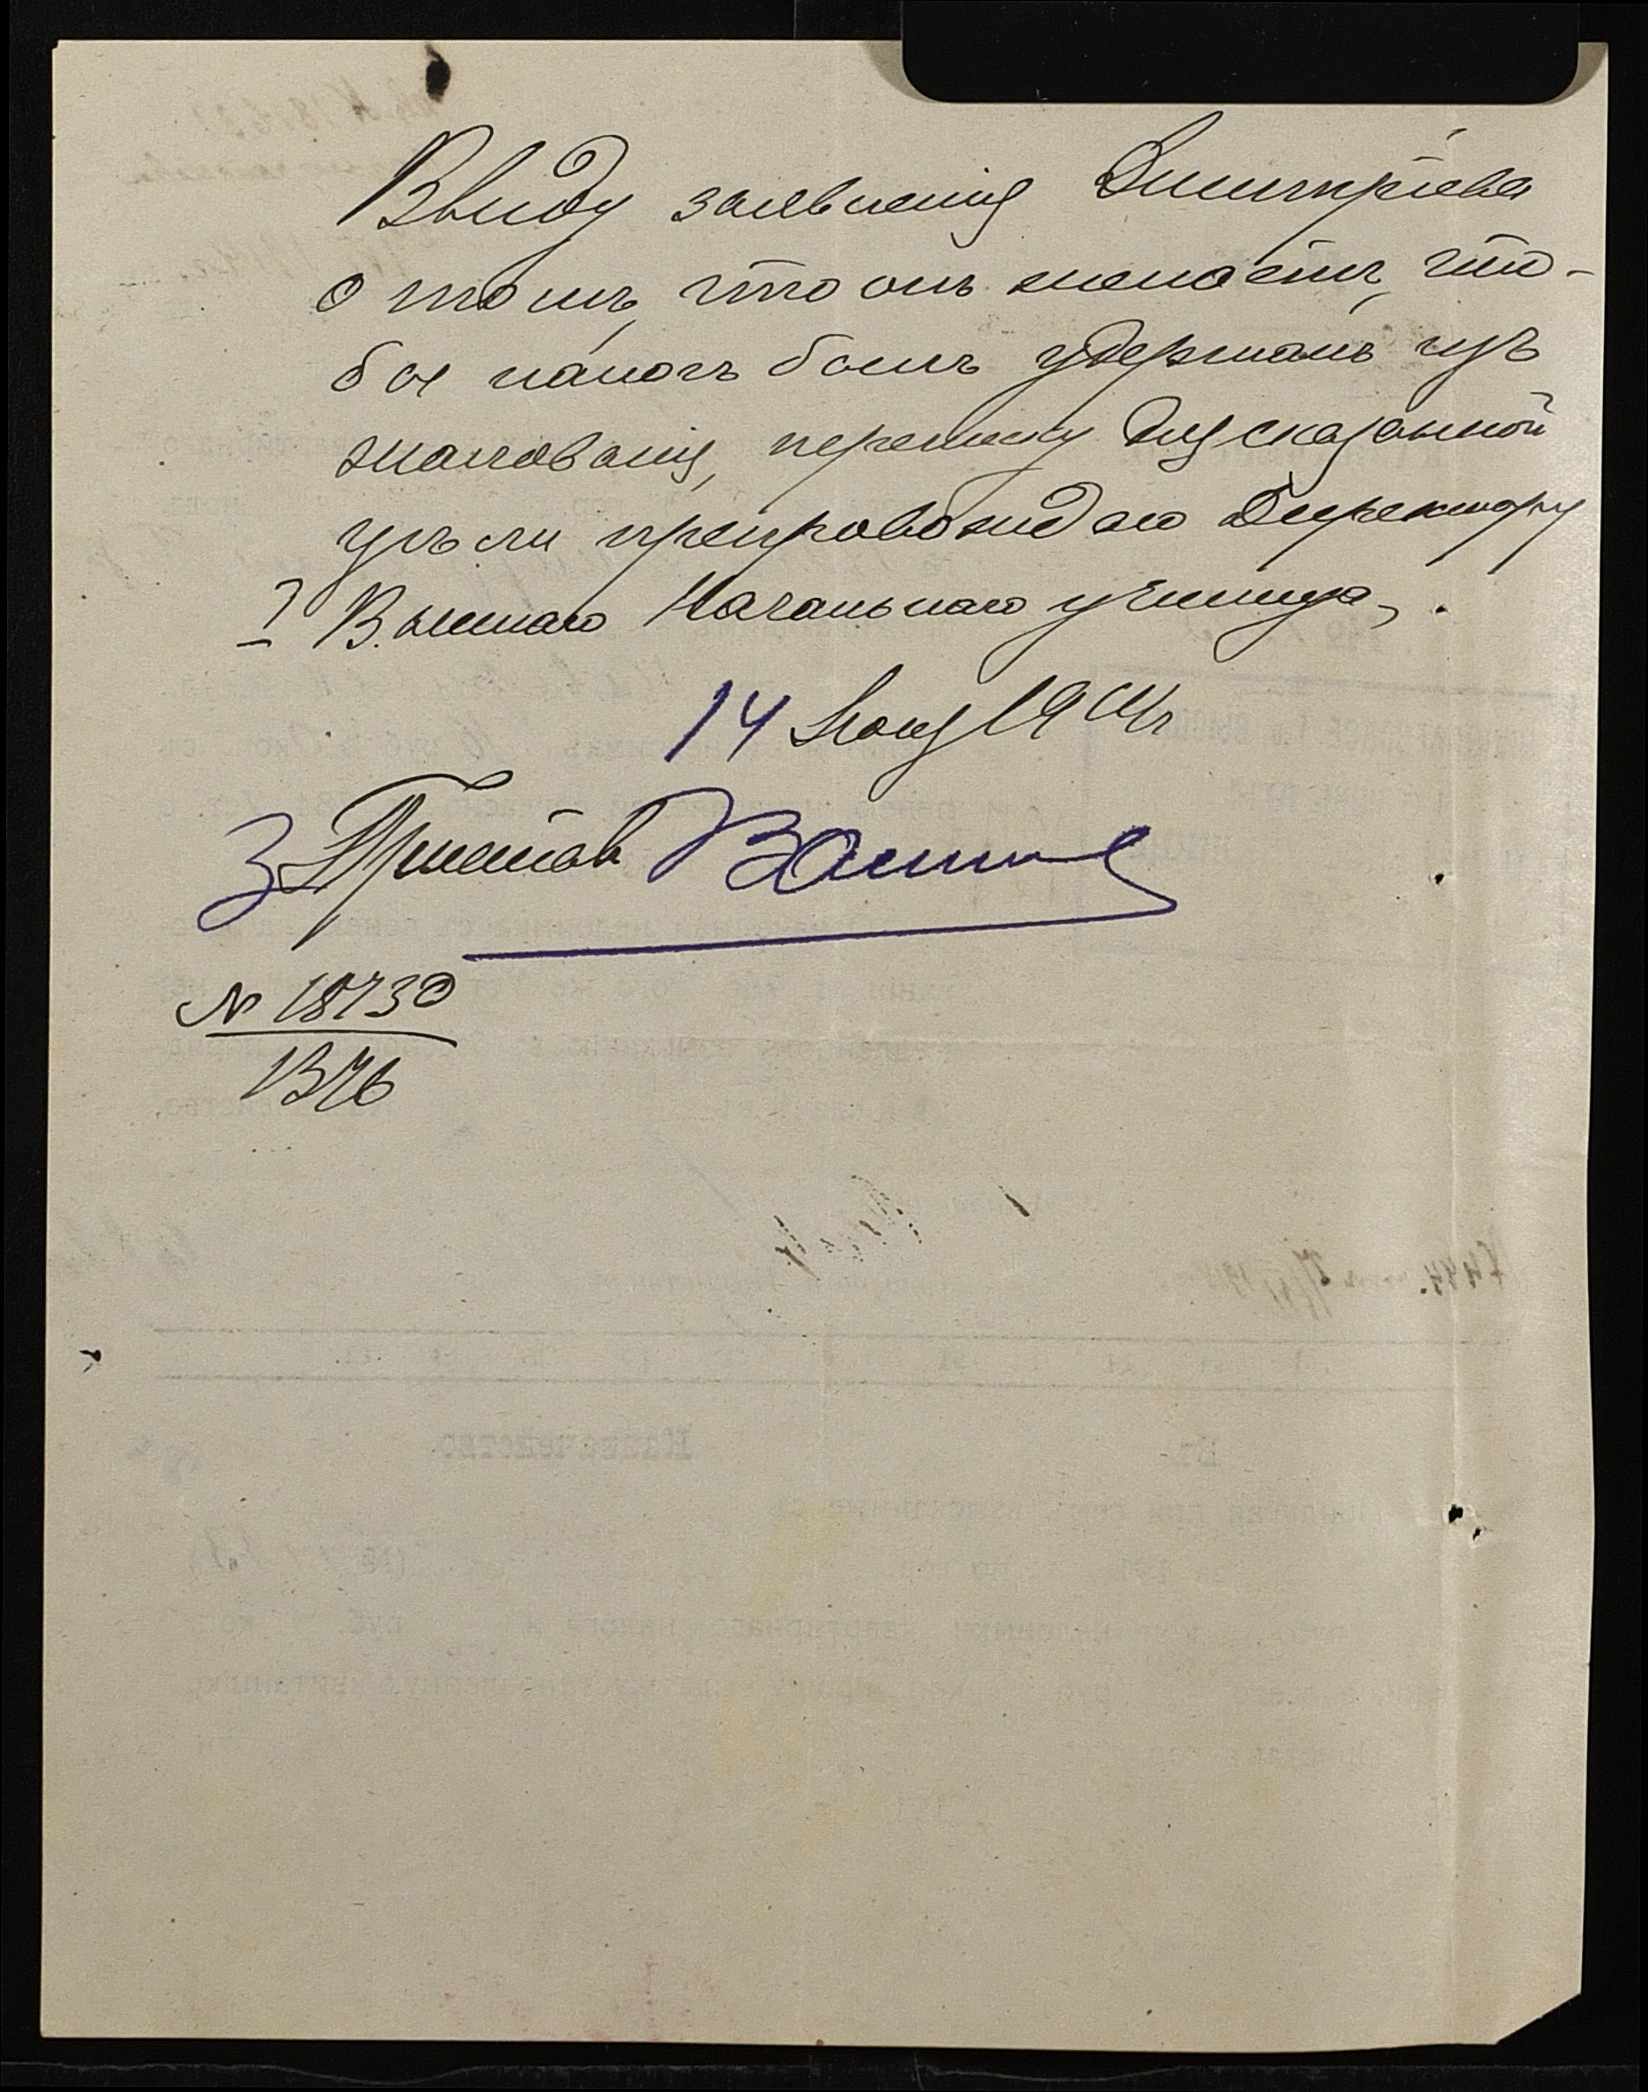 Ввиду заявленія Дмитріева
о томъ, что онъ желаетъ, что-
бы налогъ былъ удержанъ изъ
жалованія, переписку для сказанной
цѣли препровождаю Директору
I Высшаго Начальнаго училища.
14 Мая 19
Приставъ
№ 18730
1376